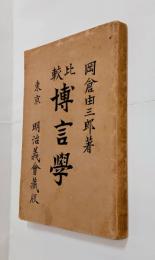 岡倉由三郎著
比較
博言學
東京 明治義會藏版